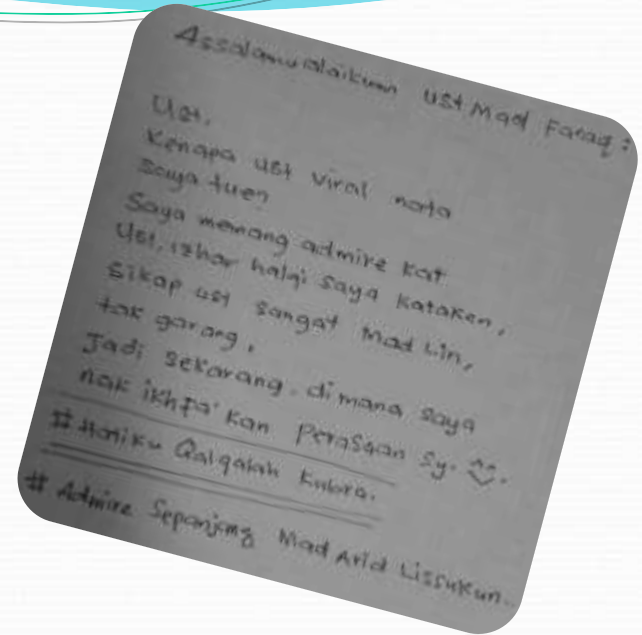 Assalamualaikum ust Mad Faraq :
Ust,
Kenapa ust viral nota
saya tu??
Saya memang admire kat
Ust, izhar halqi saya katakan,
sikap ust sangat Mad Lin,
tak garang,
Jadi sekarang. dimana saya
nak ikhfa' kan perasaan sy. ^^.
#Hatiku Qalqalah Kubra.
# Admire Sepanjang Mad Arid Lissukun..